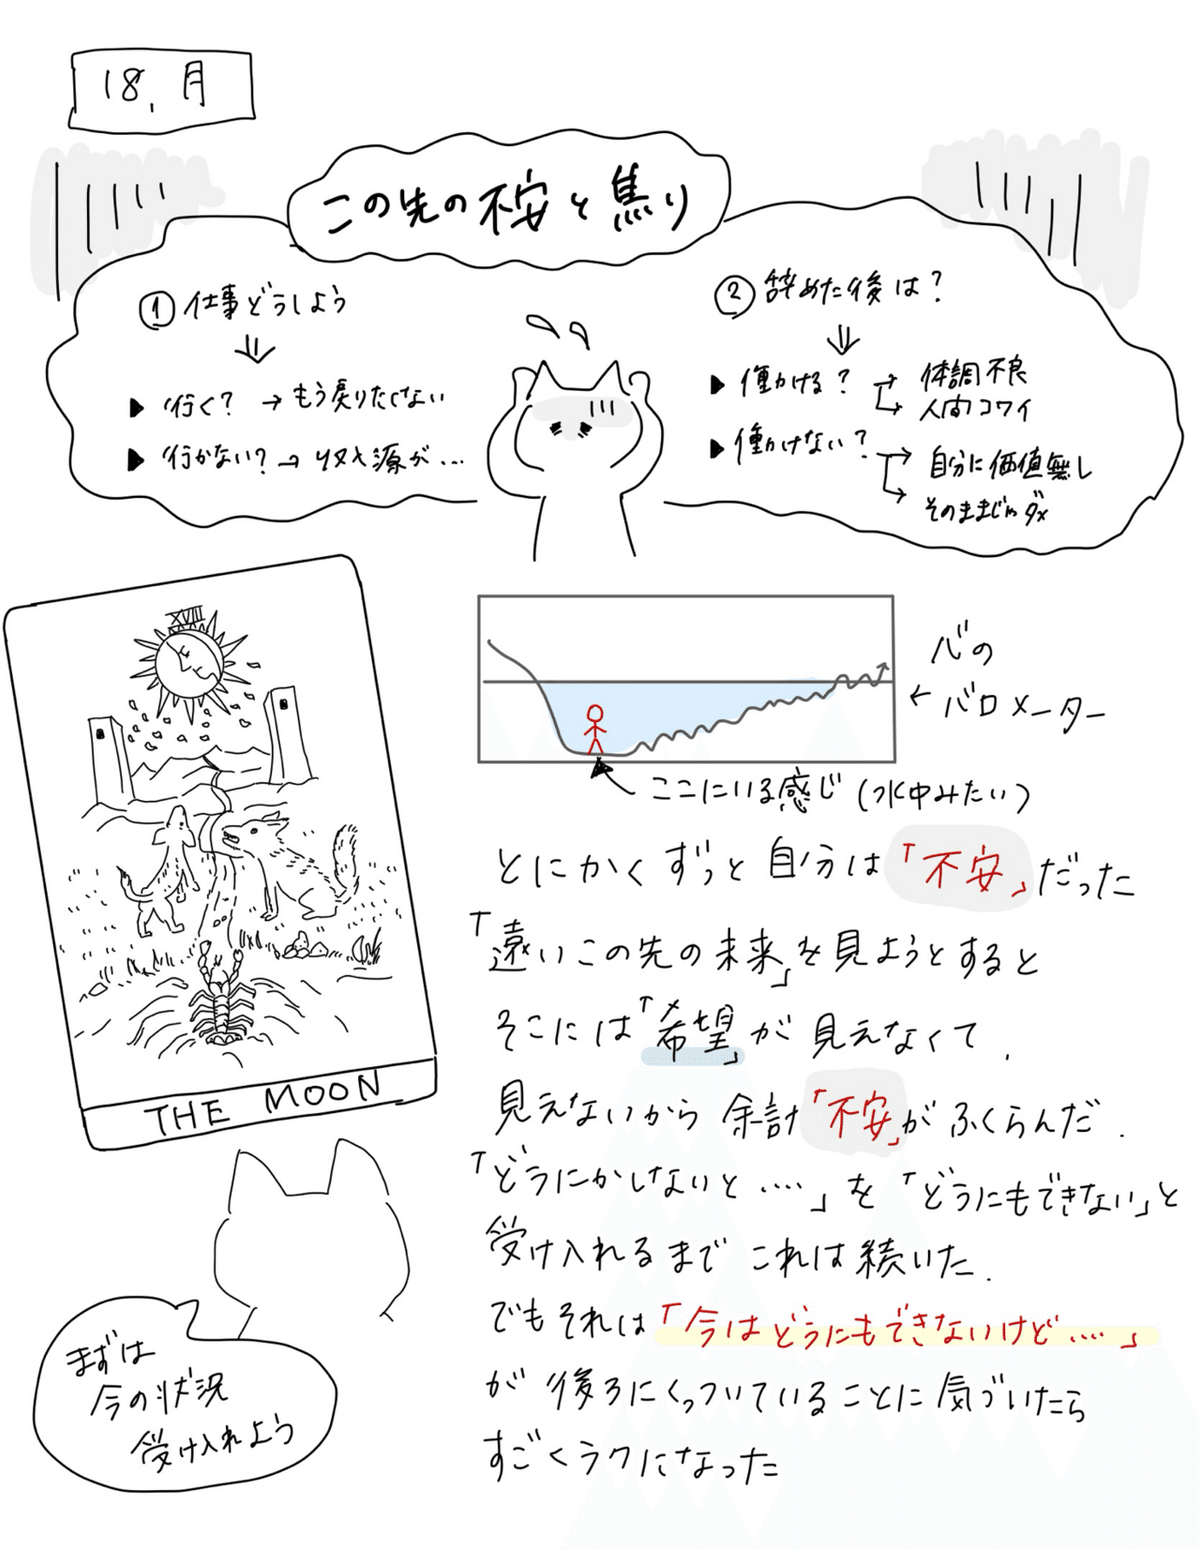 18, 月
この先の不安と焦り
① 仕事どうしよう
▶ 行く? → もう戻りたくない
▶ 行かない? → 収入源が…
② 辞めた後は?
▶ 働ける?
体調不良
人間コワイ
▶ 働けない?
自分に価値無し
そのままじゃダメ
XVIII
THE MOON
心の
← バロメーター
ここにいる感じ(水中みたい)
とにかくずっと自分は「不安」だった
「遠いこの先の未来」を見ようとすると
そこには「希望」が見えなくて.
見えないから余計「不安」がふくらんだ.
「どうにかしないと‥‥」を「どうにもできない」と
受け入れるまでこれは続いた.
でもそれは「今はどうにもできないけど‥‥」
が後ろにくっついていることに気づいたら
すごくラクになった
まずは
今の状況
受け入れよう